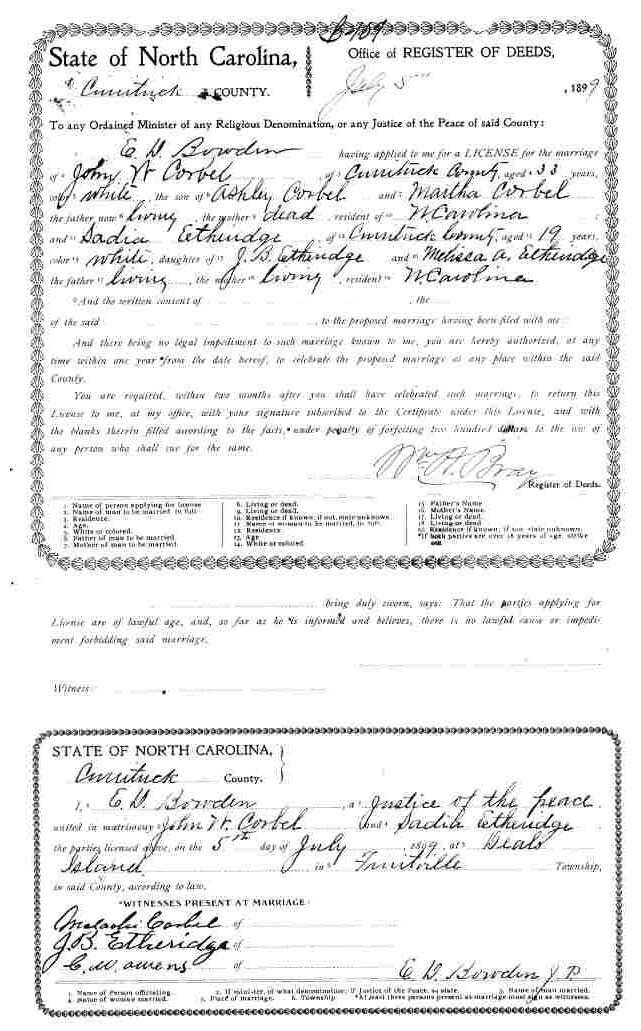 State of North Carolina,
Office of REGISTER OF DEEDS,
Currituck COUNTY.
July 5th, 1899
To any Ordained Minister of any Religious Denomination, or any Justice of the Peace of said County:
E. D. Bowden having applied to me for a LICENSE for the marriage
of John W Corbel of Currituck County, aged 33 years,
color white, the son of Ashley Corbel and Martha Corbel
the father now living, the mother dead, resident of N Carolina;
and Sadia Etheridge of Currituck County, aged 19 years,
color white, daughter of J. B. Etheridge and Melissa A. Etheridge
the father living, the mother living, resident N Carolina
And the written consent of , the
of the said , to the proposed marriage having been filed with me:
And there being no legal impediment to such marriage known to me, you are hereby authorized, at any
time within one year from the date hereof, to celebrate the proposed marriage at any place within the said
County.
You are required, within two months after you shall have celebrated such marriage, to return this
License to me, at my office, with your signature subscribed to the Certificate under this License, and with
the blanks therein filled according to the facts, under penalty of forfeiting two hundred dollars to the use of
any person who shall sue for the same.
Wm. A. Bray
Register of Deeds.
1. Name of person applying for license
2. Name of man to be married in full.
3. Residence.
4. Age.
5. White or colored.
6. Father of man to be married.
7. Mother of man to be married.
8. Living or dead.
9. Living or dead.
10. Residence if known; if not, state unknown.
11. Name of woman to be married, in full.
12. Residence.
13. Age
14. White or colored
15. Father's Name
16. Mother's Name.
17. Living or dead.
18. Living or dead
19. Residence if known; if not state unknown.
*If both parties are over 18 years of age, strike
out.
being duly sworn, says: That the parties applying for
License are of lawful age, and, so far as he is informed and believes, there is no lawful cause or impedi-
ment forbidding said marriage.
Witness:
STATE OF NORTH CAROLINA,
Currituck County.
I, E. D. Bowden, a Justice of the peace
united in matrimony John W. Corbel and Sadia Etheridge
the parties licensed above, on the 5th day of July 1899, at Deals
Island in Fruitville Township,
in said County, according to law.
*WITNESSES PRESENT AT MARRIAGE:
Malachi Corbel of
J. B. Etheridge of
C. W. Owens of
E. D. Bowden J. P
1. Name of Person officiating. 2. If minister, of what denomination; if Justice of the Peace, so state. 3. Name of man married.
4. Name of woman married. 5. Place of marriage. 6. Township *At least three persons present at marriage must sign as witnesses.